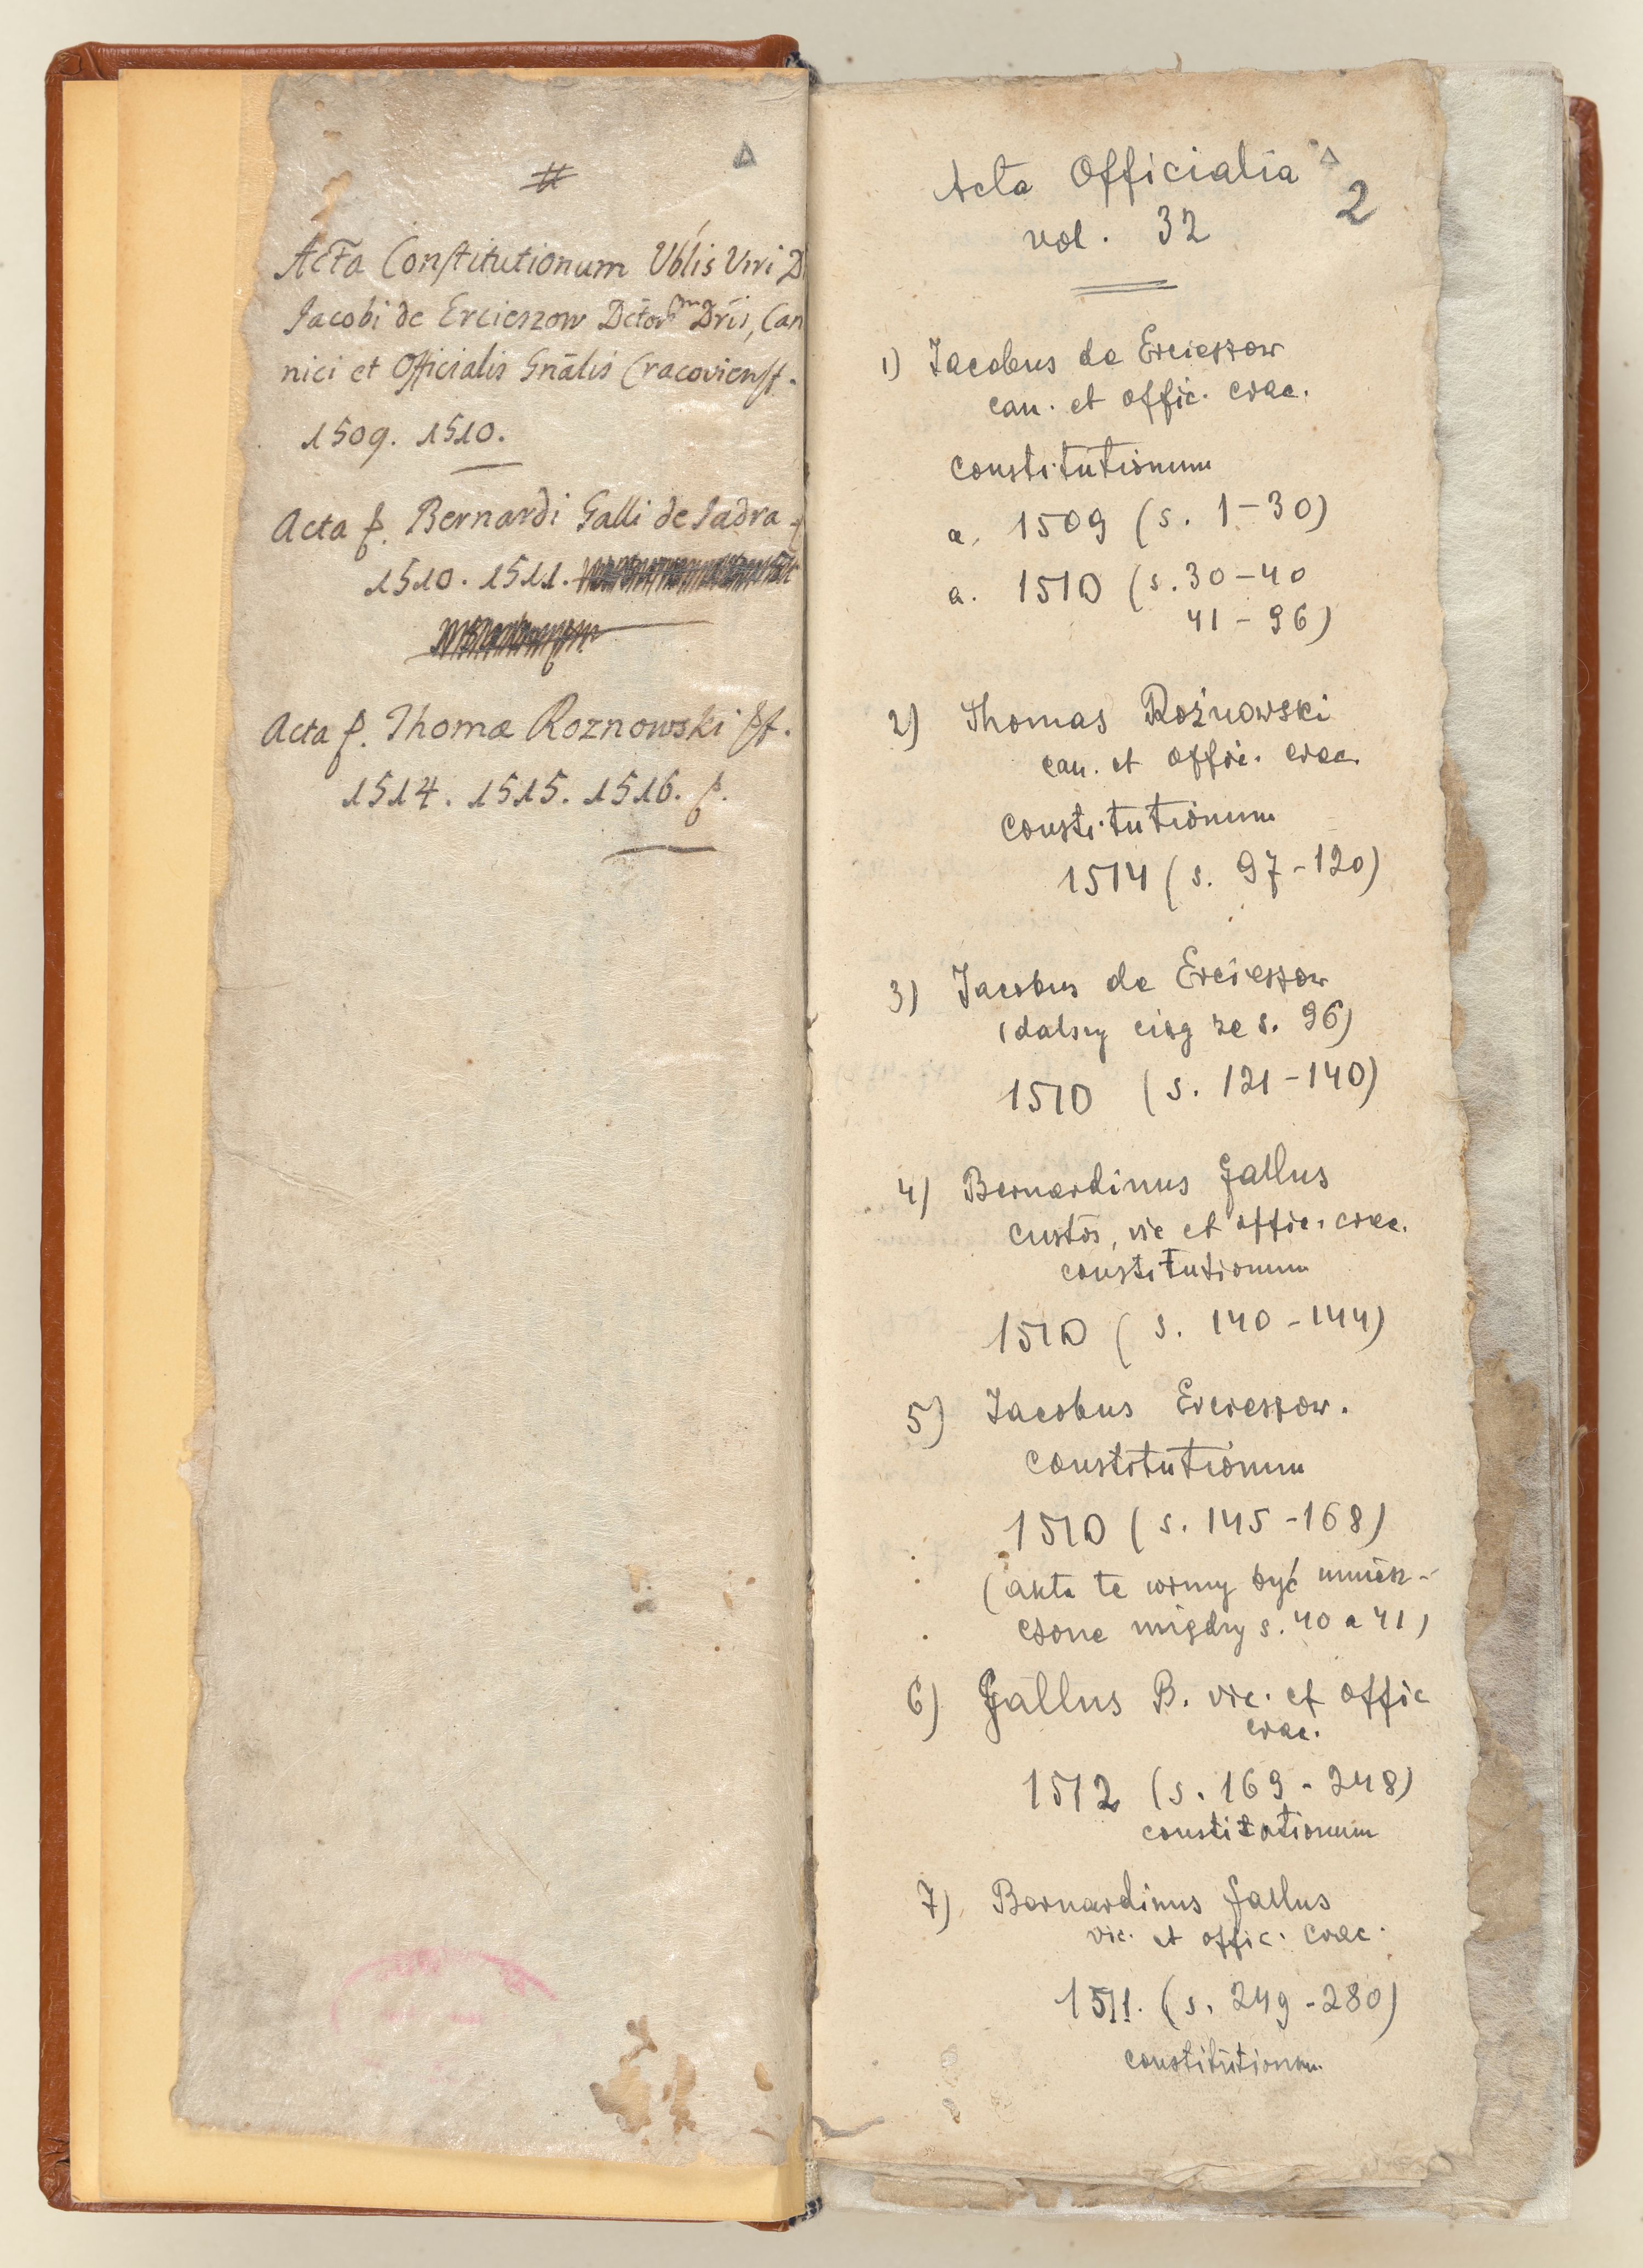 #
Acta Constitutionum Vblis Viri D
Jacobi de Ercieszow Dctorm Dris, Can
nici et Officialis Gnālis Cracovienſ.
1509. 1510.
Acta f. Bernardi Galli de Jadra
1510. 1511.
Acta f. Thomæ Roznowski ſſ.
1514. 1515. 1516. f.
Acta Officialia
2
vol. 32
1) Jacobus de Ercieszow
can. et offic. crac.
constitutionum
a. 1509 (s. 1-30)
a. 1510 (s. 30-40
41-96)
2) Thomas Rożnowski
can. et offic. crac.
constitutionum
1514 (s. 97-120)
3) Jacobus de Ercieszow
(dalszy ciąg ze s. 96)
1510 (s. 121-140)
4) Bernardinus Gallus
custos, vic et offic. crac.
constitutionum
1510 (s. 140-144)
5) Jacobus Ercieszow.
constitutionum
1510 (s. 145-168)
(akta te winny być umiesz-
czone między s. 40 a 41)
6) Gallus B. vic. et offic
crac.
1512 (s. 169-248)
constitutionum
7) Bernardinus Gallus
vic. et offic. crac.
1511. (s. 249-280)
constitutionum